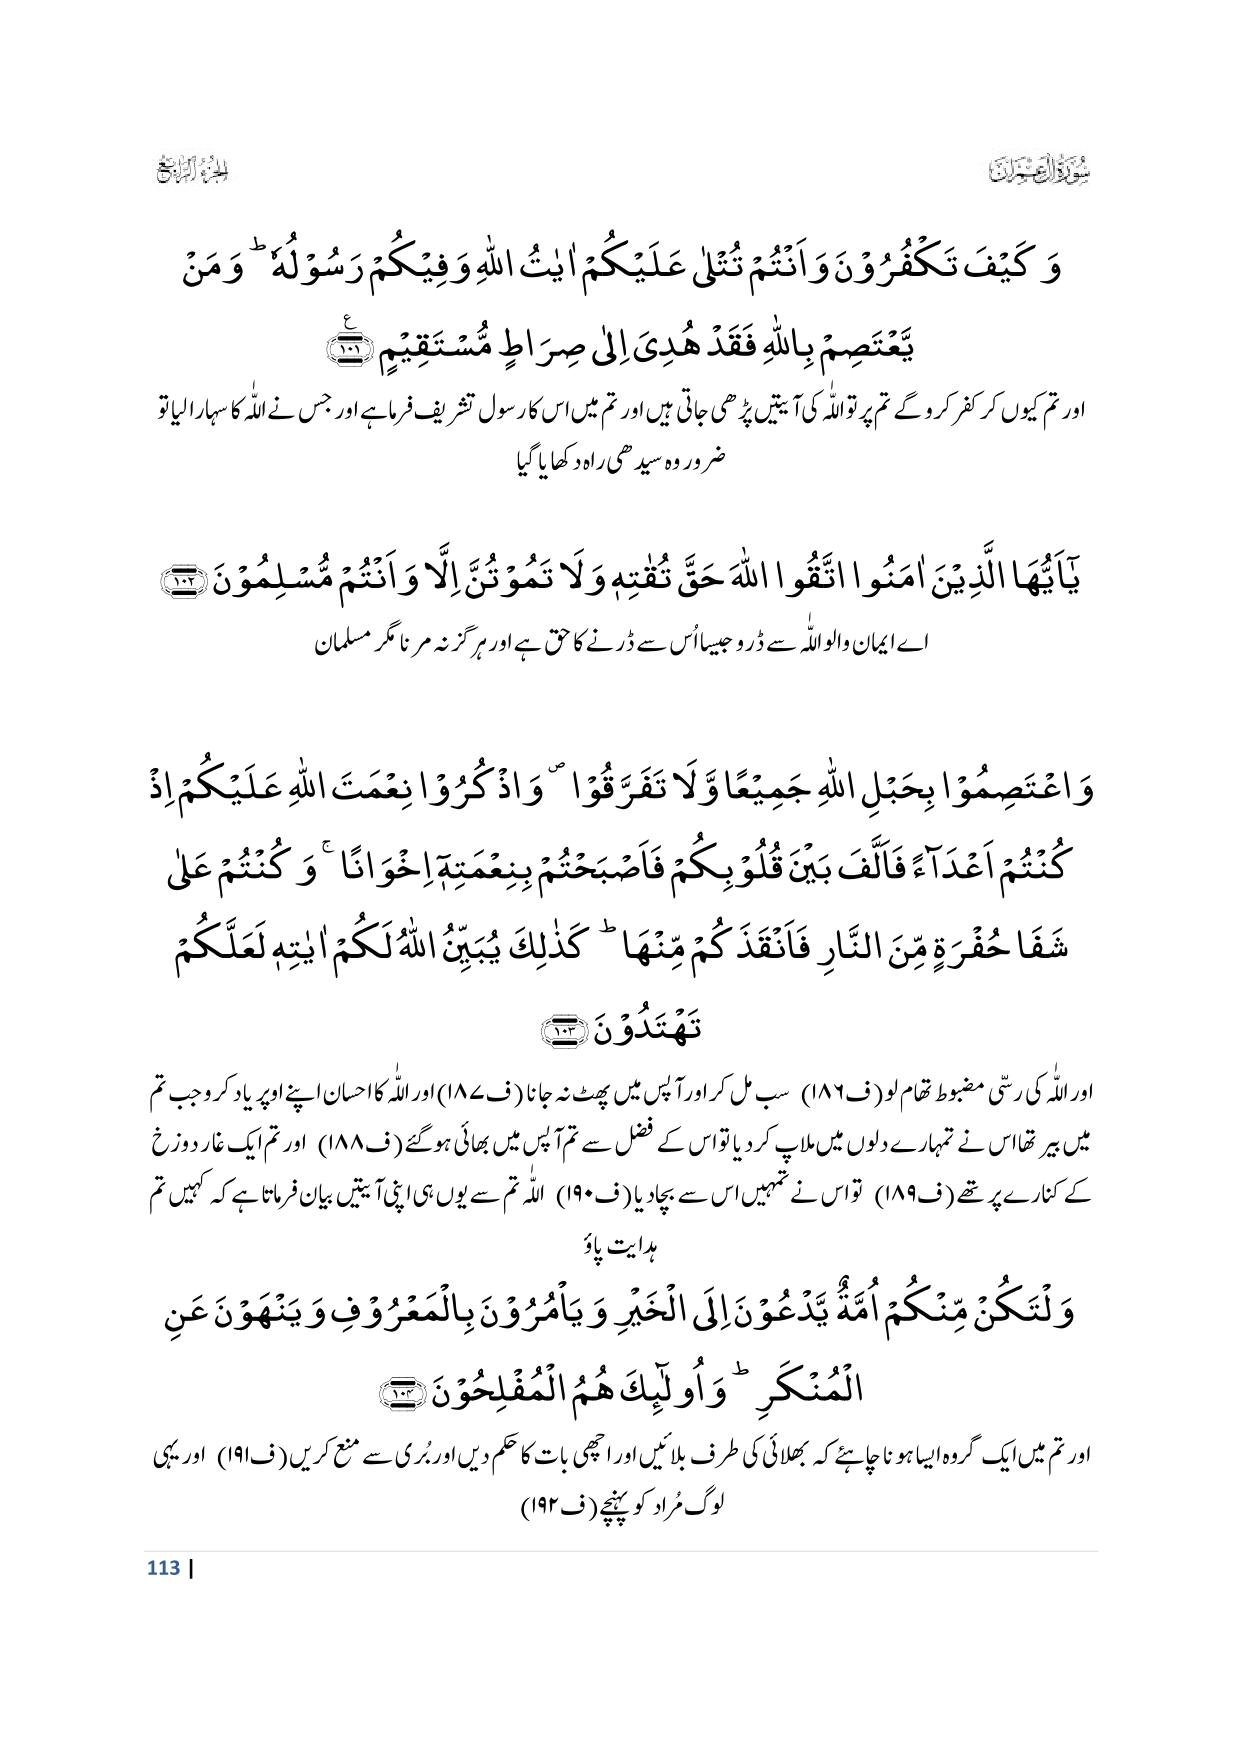 سُوْرَةُ اٰلِ عِمْرَان
الجزء الرابع
وَ كَیْفَ تَكْفُرُوْنَ وَ اَنْتُمْ تُتْلٰى عَلَیْكُمْ اٰیٰتُ اللّٰهِ وَ فِیْكُمْ رَسُوْلُهٗ ؕ وَ مَنْ
یَّعْتَصِمْ بِاللّٰهِ فَقَدْ هُدِیَ اِلٰى صِرَاطٍ مُّسْتَقِیْمٍ ﴿۱۰۱﴾ ع
اور تم کیوں کر کفر کرو گے تم پر تو اللّٰہ کی آیتیں پڑھی جاتی ہیں اور تم میں اس کا رسول تشریف فرما ہے اور جس نے اللّٰہ کا سہارا لیا تو
ضرور وہ سیدھی راہ دکھایا گیا
یٰۤاَیُّهَا الَّذِیْنَ اٰمَنُوا اتَّقُوا اللّٰهَ حَقَّ تُقٰتِهٖ وَ لَا تَمُوْتُنَّ اِلَّا وَ اَنْتُمْ مُّسْلِمُوْنَ ﴿۱۰۲﴾
اے ایمان والو اللّٰہ سے ڈرو جیسا اُس سے ڈرنے کا حق ہے اور ہرگز نہ مرنا مگر مسلمان
وَ اعْتَصِمُوْا بِحَبْلِ اللّٰهِ جَمِیْعًا وَّ لَا تَفَرَّقُوْا ۪ وَ اذْكُرُوْا نِعْمَتَ اللّٰهِ عَلَیْكُمْ اِذْ
كُنْتُمْ اَعْدَآءً فَاَلَّفَ بَیْنَ قُلُوْبِكُمْ فَاَصْبَحْتُمْ بِنِعْمَتِهٖۤ اِخْوَانًا ۚ وَ كُنْتُمْ عَلٰى
شَفَا حُفْرَةٍ مِّنَ النَّارِ فَاَنْقَذَكُمْ مِّنْهَا ؕ كَذٰلِكَ یُبَیِّنُ اللّٰهُ لَكُمْ اٰیٰتِهٖ لَعَلَّكُمْ
تَهْتَدُوْنَ ﴿۱۰۳﴾
اور اللّٰہ کی رسّی مضبوط تھام لو (ف۱۸۶) سب مل کر اور آپس میں پھٹ نہ جانا (ف۱۸۷) اور اللّٰہ کا احسان اپنے اوپر یاد کرو جب تم
میں بیر تھا اس نے تمہارے دلوں میں ملاپ کر دیا تو اس کے فضل سے تم آپس میں بھائی ہو گئے (ف۱۸۸) اور تم ایک غار دوزخ
کے کنارے پر تھے (ف۱۸۹) تو اس نے تمہیں اس سے بچا دیا (ف۱۹۰) اللّٰہ تم سے یوں ہی اپنی آیتیں بیان فرماتا ہے کہ کہیں تم
ہدایت پاؤ
وَ لْتَكُنْ مِّنْكُمْ اُمَّةٌ یَّدْعُوْنَ اِلَى الْخَیْرِ وَ یَاْمُرُوْنَ بِالْمَعْرُوْفِ وَ یَنْهَوْنَ عَنِ
الْمُنْكَرِ ؕ وَ اُولٰٓىِٕكَ هُمُ الْمُفْلِحُوْنَ ﴿۱۰۴﴾
اور تم میں ایک گروہ ایسا ہونا چاہئے کہ بھلائی کی طرف بلائیں اور اچھی بات کا حکم دیں اور بُری سے منع کریں (ف۱۹۱) اور یہی
لوگ مُراد کو پہنچے (ف۱۹۲)
113 |